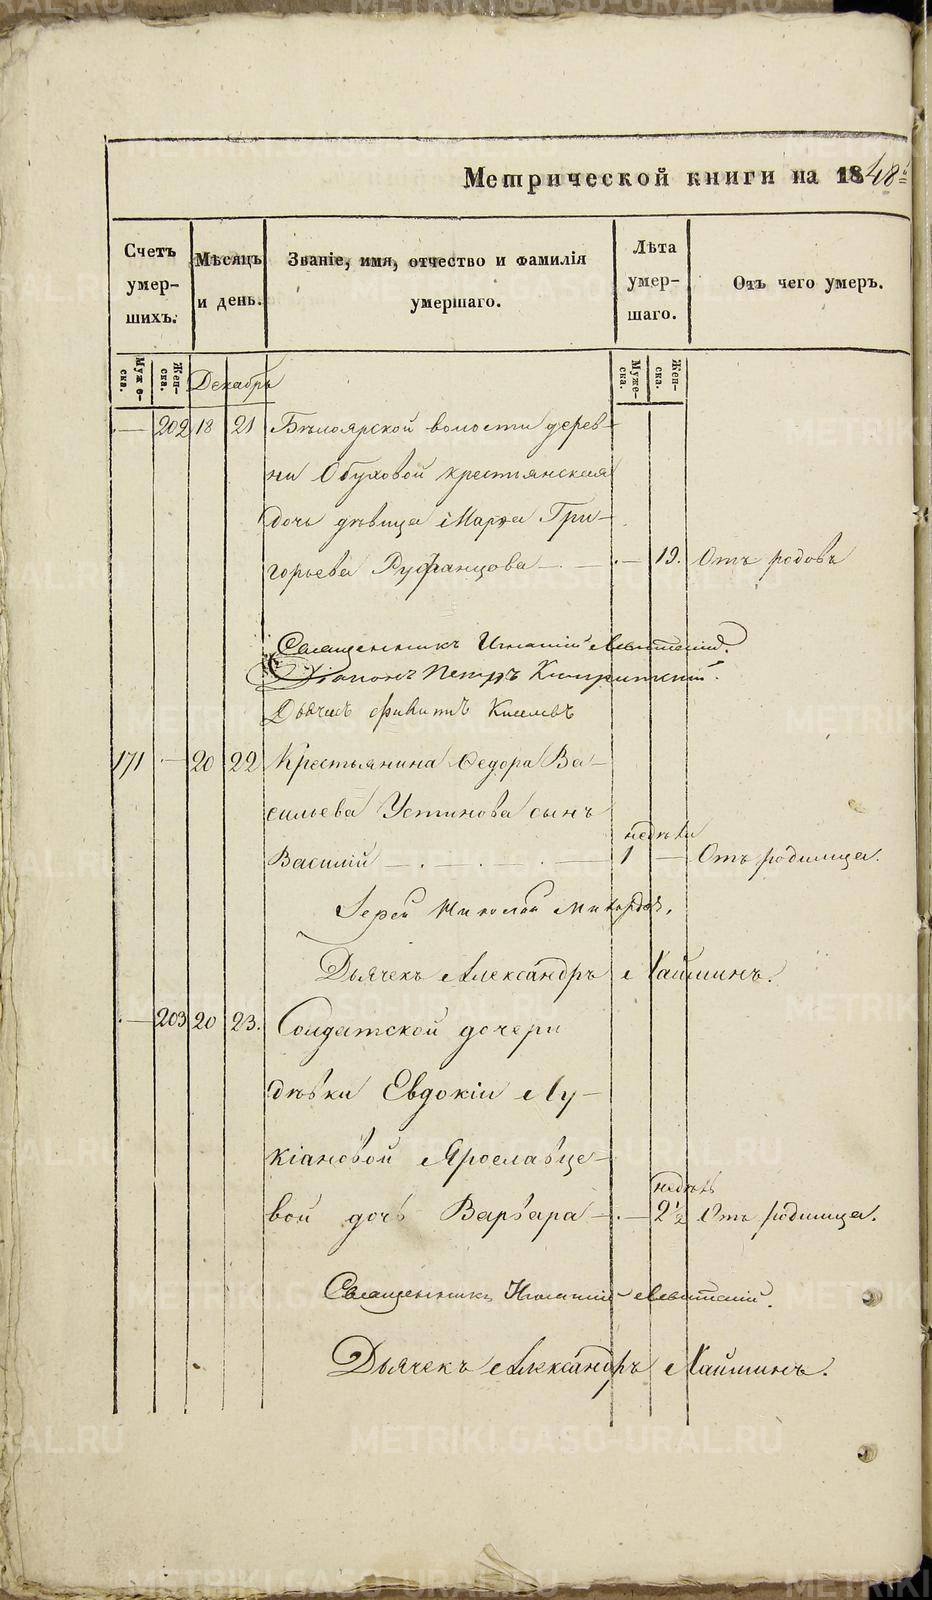 Метрической книги на 1848й
Счетъ умер-шихъ.
Мѣсяцъ и день.
Званіе, имя, отчество и фамилія умершаго.
Лѣта умер-шаго.
Отъ чего умеръ.
Муже-ска.
Жен-ска.
Декабрь
Муже-ска.
Жен-ска.
— 202 18 21 Бѣлоярской волости дерев-
ни Обуховой крестьянская
дочь дѣвица Марѳа Гри-
горьева Руфанцова — . — . — 19. Отъ родовъ
Священникъ Игнатій Левитскій.
Діаконъ Петръ
Дьячекъ Филитъ Киселевъ
171 — 20 22 Крестьянина Федора Ва-
сильева Устинова сынъ
недѣли
Василій — . — . — . — 1 — Отъ родимца.
Іерей Николай
Дьячекъ Александръ Хаймннъ.
. — 203 20 23. Солдатской дочери
дѣвки Евдокіи Лу-
кіановой Ярославце-
недѣль
вой дочь Варвара — . — 2½ Отъ родимца.
Священникъ Игнатій Левитскій.
Дьячекъ Александръ Хайминъ.
METRIKI.GASO-URAL.RU